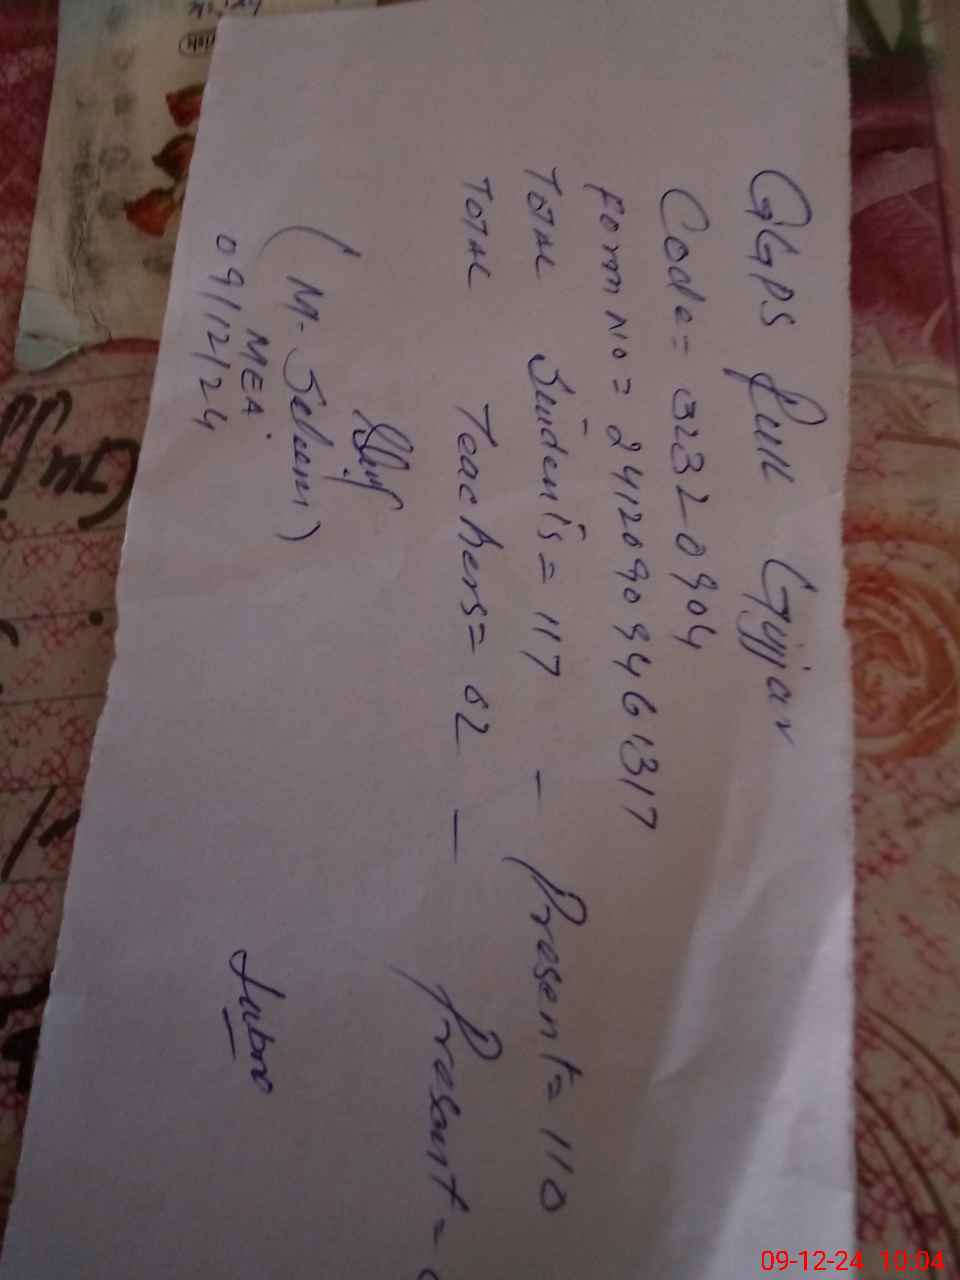 GGPS Pull Gujjar
Code = 32320904
Form No = 24120909461317
Total Students = 117 - Present = 110
Total Teachers = 02 - Present =
(M. Saleem)
MEA
09/12/24
09-12-24 10:04